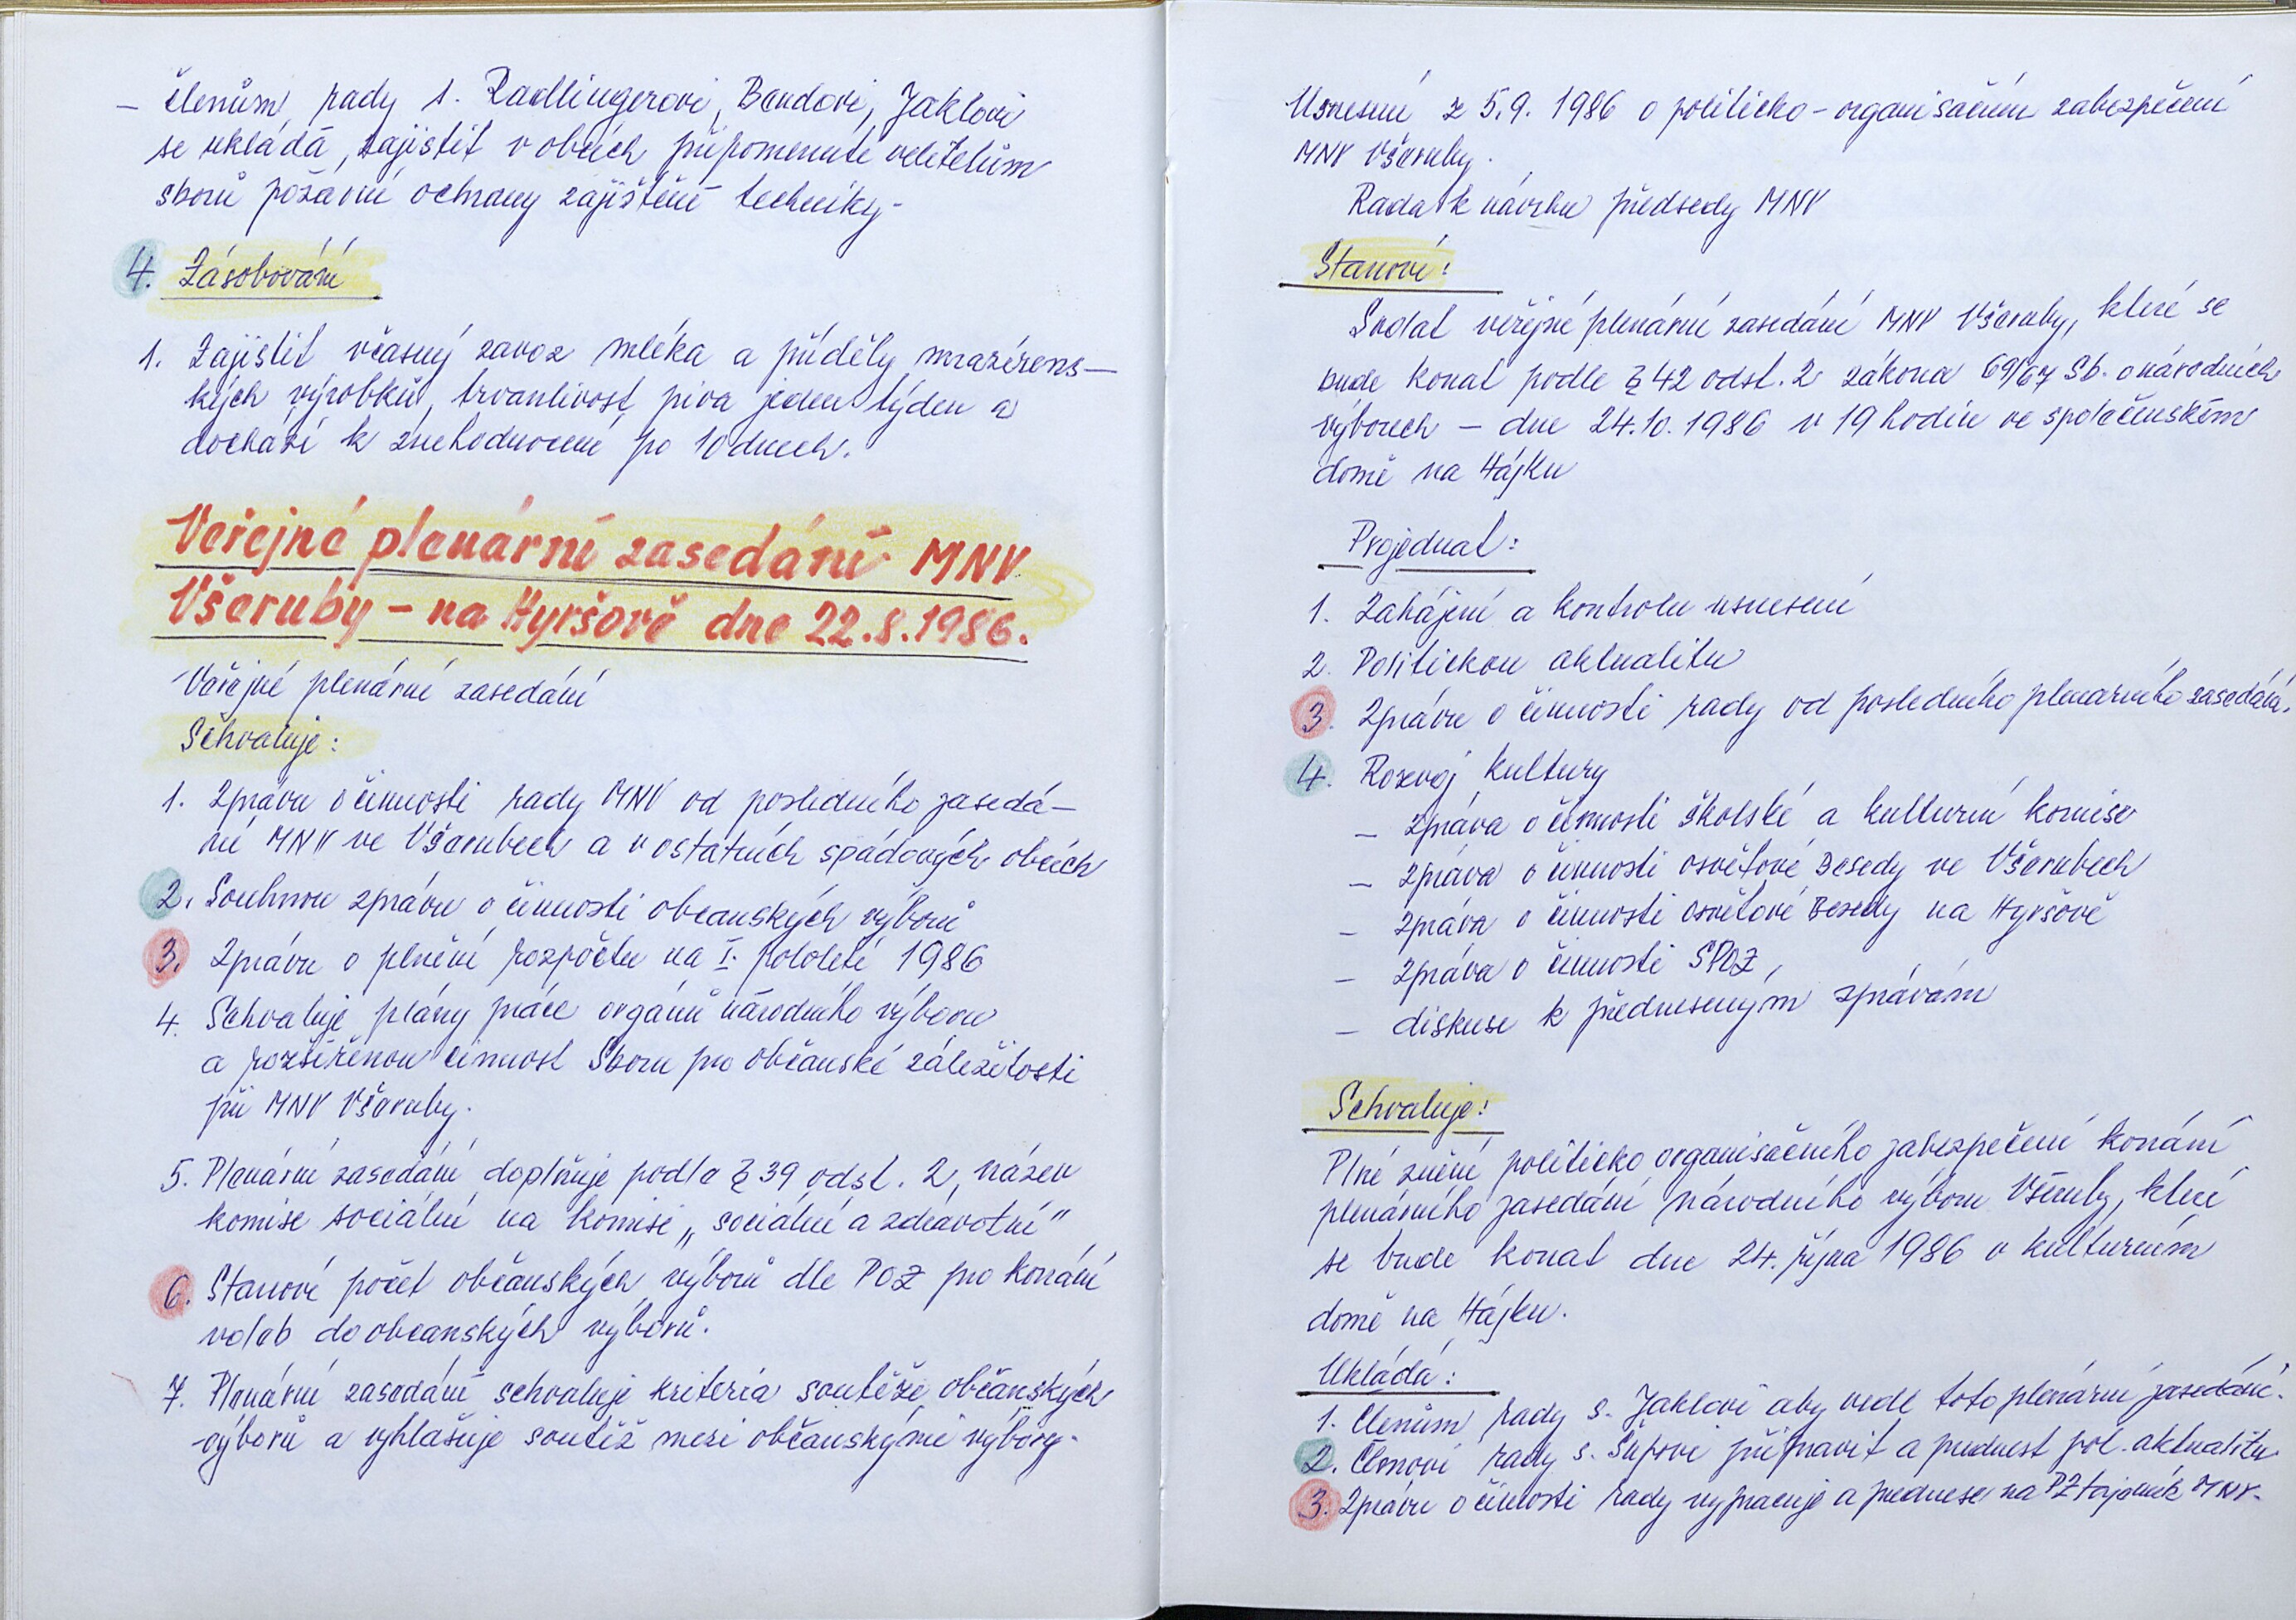 – členům rady s. Radlingerovi, Bendovi, Jaklovi
se ukládá, zajistit v obcích připomenutí velitelům
sborů požární ochrany zajištění techniky.
4. Zásobování
1. Zajistit včasný zavoz mléka a příděly mrazírens–
kých výrobků, trvanlivost piva jeden týden a
dochází k znehodnocení po 10 dnech.
Veřejné plenární zasedání MNV
Všeruby – na Hyršově dne 22.8.1986.
Veřejné plenární zasedání
Schvaluje:
1. Zprávu o činnosti rady MNV od posledního zasedá–
ní MNV ve Všerubech a v ostatních spádových obcích
2. Souhrnou zprávu o činnosti občanských výborů
3. Zprávu o plnění rozpočtu na I. pololetí 1986
4. Schvaluje plány práce orgánů národního výboru
a rozšířenou činnost Sboru pro občanské záležitosti
při MNV Všeruby.
5. Plenární zasedání doplňuje podle § 39 odst. 2, název
komise sociální na komisi „sociální a zdravotní"
6. Stanoví počet občanských výborů dle POZ pro konání
voleb do občanských výborů.
7. Plenární zasedání schvaluje kriteria soutěže občanských
výborů a vyhlašuje soutěž mezi občanskými výbory.
Usnesení z 5.9. 1986 o politicko – organisačním zabezpečení
MNV Všeruby.
Rada k návrhu předsedy MNV
Stanoví:
Svolat veřejné plenární zasedání MNV Všeruby, které se
bude konat podle § 42 odst. 2 zákona 69/67 Sb. o národních
výborech – dne 24.10.1986 v 19 hodin ve společenském
domě na Hájku
Projednat:
1. Zahájení a kontrolu usnesení
2. Politickou aktualitu
3. Zprávu o činnosti rady od posledního plenárního zasedání.
4. Rozvoj kultury
– zpráva o činnosti školské a kulturní komise
– zpráva o činnosti osvětové besedy ve Všerubech
– zpráva o činnosti osvětové besedy na Hyršově
– zpráva o činnosti SPOZ,
– diskuse k předneseným zprávám
Schvaluje:
Plné znění politicko organisačního zabezpečení konání
plenárního zasedání národního výboru Všeruby, které
se bude konat dne 24. října 1986 v kulturním
domě na Hájku.
Ukládá:
1. Členům rady s. Jaklovi aby vedl toto plenární zasedání.
2. Členovi rady s. Šupovi připravit a přednest pol. aktualitu
3. Zprávu o činnosti rady vypracuje a přednese na PZ tajemník MNV.